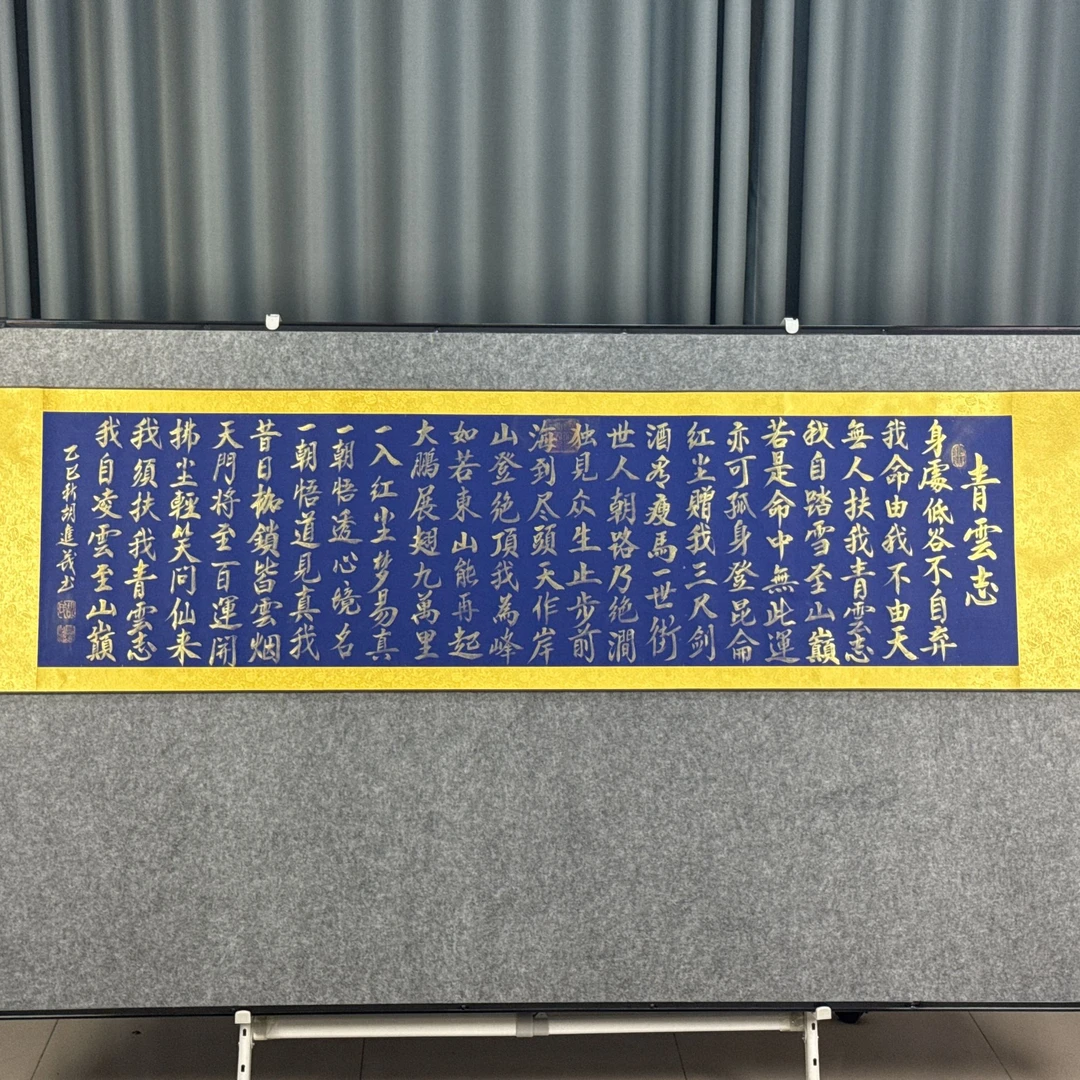 青雲志
身處低谷不自弃
我命由我不由天
無人扶我青雲志
我自踏雪至山巔
若是命中無此運
亦可孤身登昆侖
红尘赠我三尺剑
酒肴瘦馬一世街
世人朝路乃绝澗
独見众生止步前
海到尽頭天作岸
山登绝頂我為峰
如若東山能再起
大鵬展翅九萬里
一入红尘梦易真
一朝悟透心境名
一朝悟道見真我
昔日枷鎖皆雲烟
天門将至百運開
拂尘輕笑问仙来
我須扶我青雲志
我自凌雲至山巔
乙巳
胡進義书